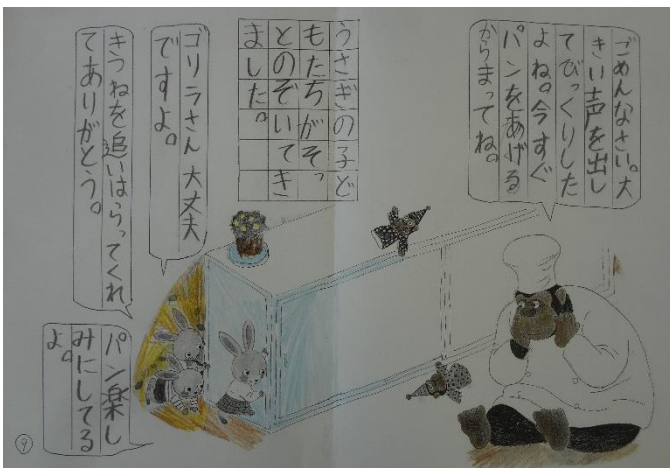 ごめんなさい。大
きい声を出し
てびっくりした
よね。今すぐ
パンをあげる
からまってね。
うさぎの子ど
もたちがそっ
とのぞいてき
ました。
ゴリラさん 大丈夫
ですよ。
きつねを追いはらってくれ
てありがとう。
パン楽し
みにしてる
よ。
9